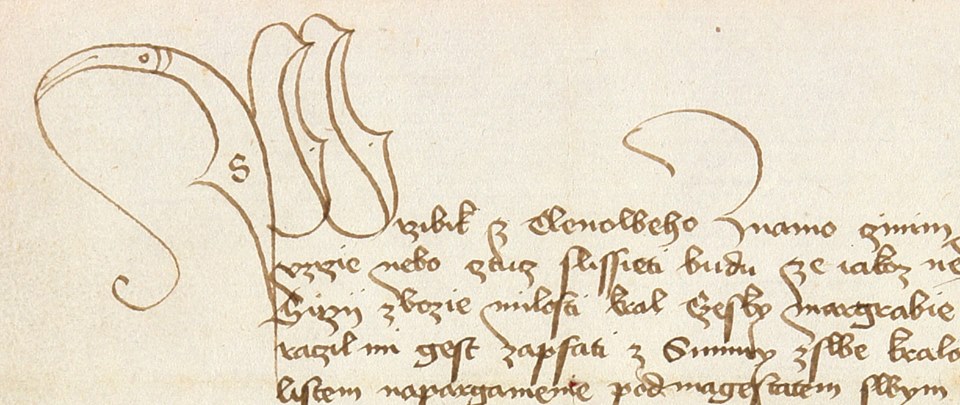 S
Przibik z Clenoweho znamo czinim
vzrzie nebo cztucz slissieti budu ze iakoz ne
Girzij z bozie milosti kral Czesky margrabie
raczil mi gest zapsati z Summy z swe kralo
listem napargamenie pod magestatem swym